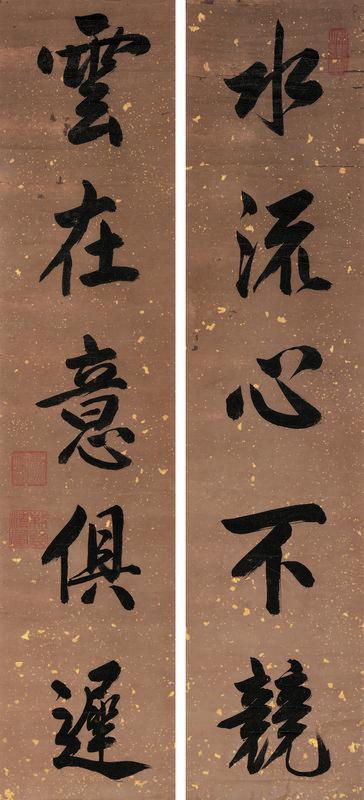 水流心不競
雲在意俱遲